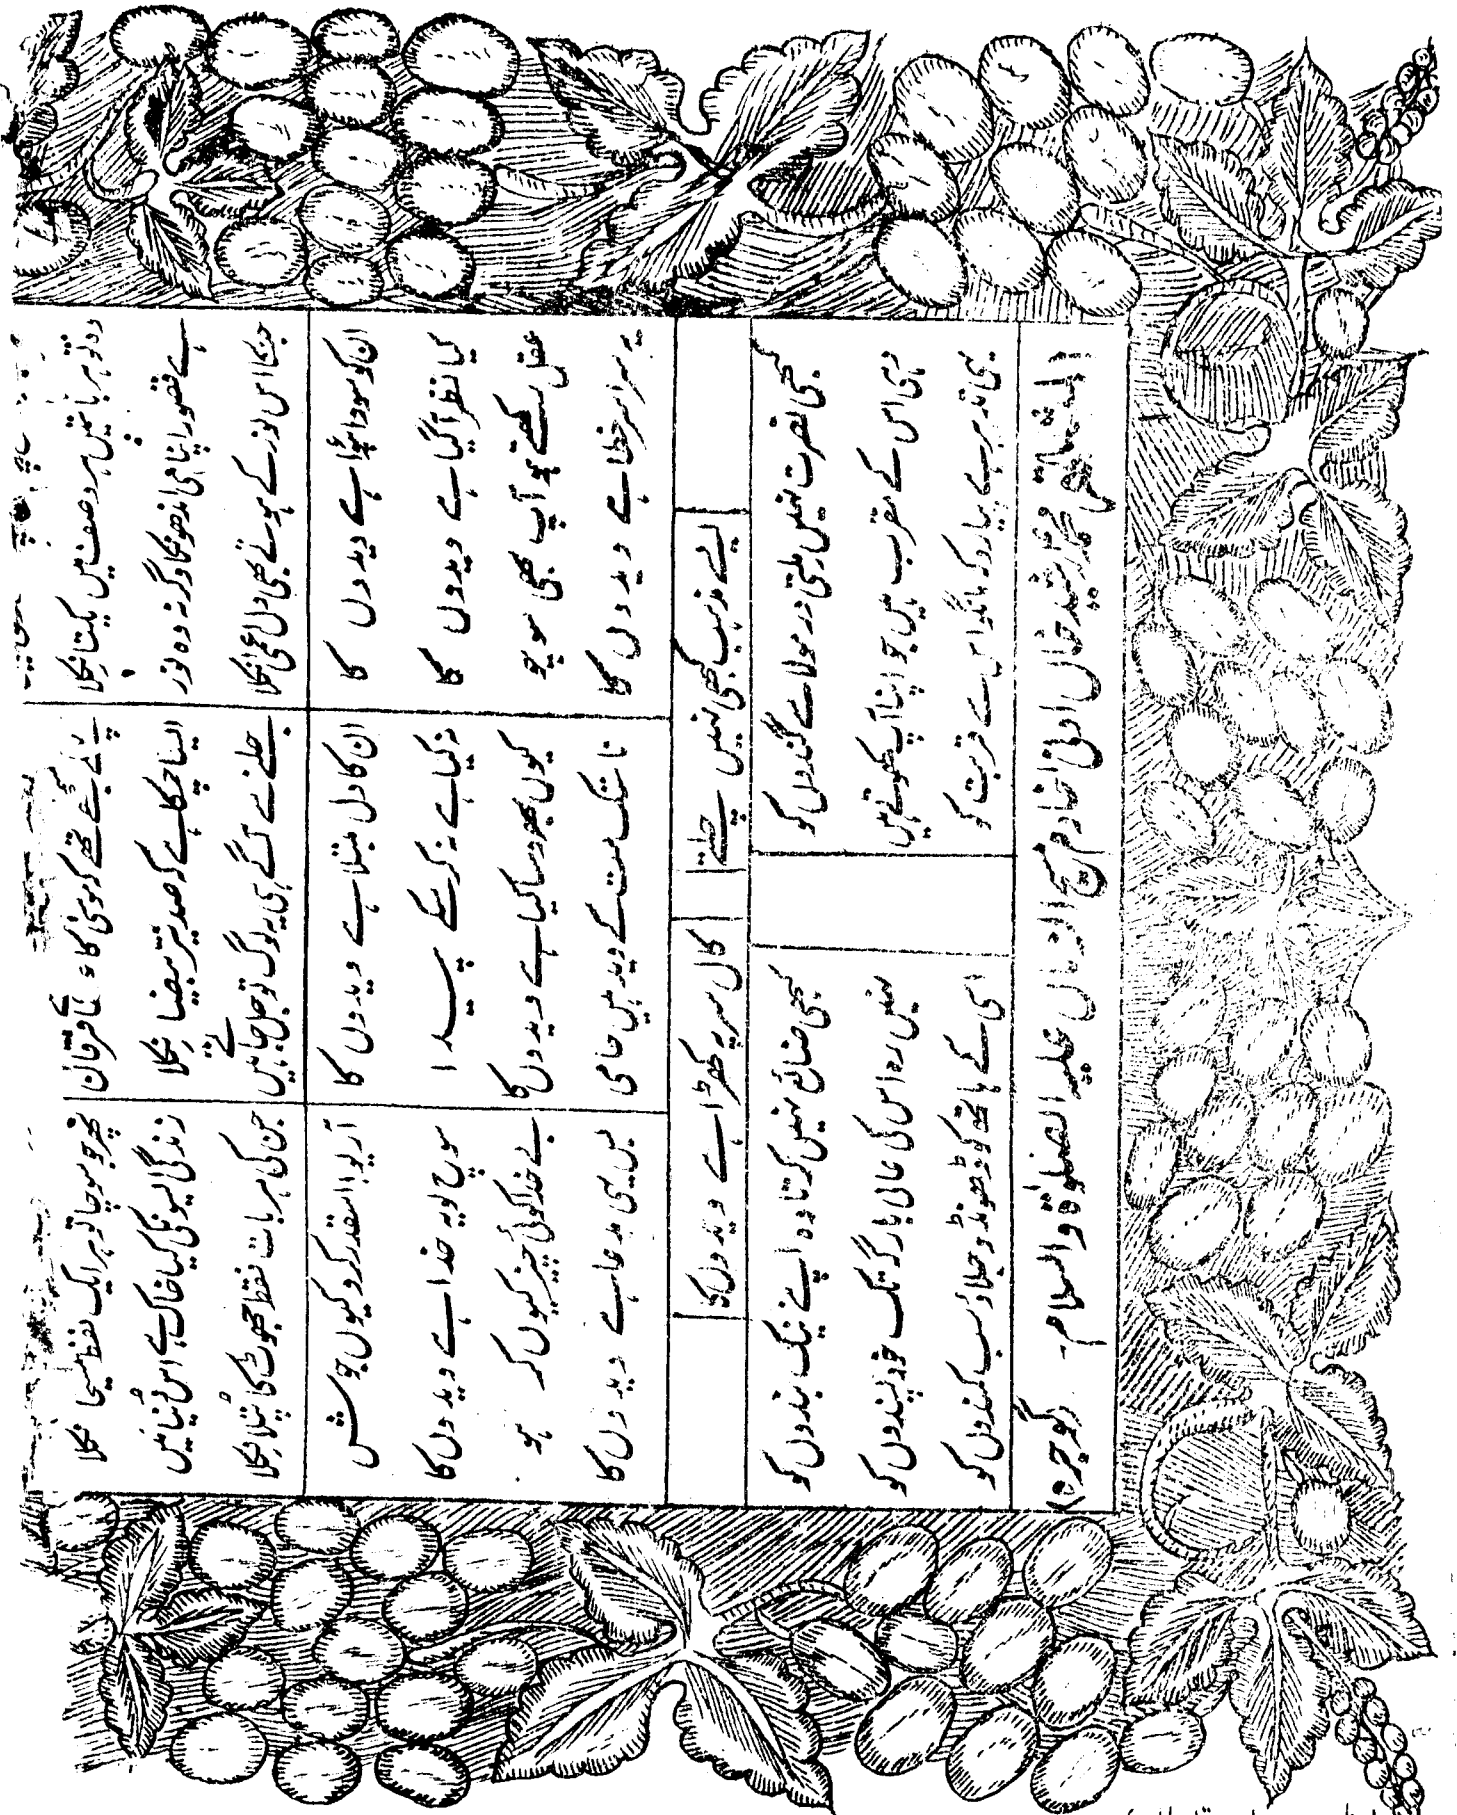 وہ تو ہر بات میں ہر وصف میں یکتا نکلا پہلے سمجھے تھے کہ موسیٰ کا عصا ہے فرقان پھر جو سوچا تو ہر ایک لفظ مسیحا نکلا
ہے قصور اپنا ہی اندھونکا وگرنہ وہ نور ایسا چمکا ہے کہ صد نیّر بیضا نکلا زندگی ایسونکی کیا خاک ہے اس دُنیا میں
جنکا اس نور کے ہوتے بھی دل اعمیٰ نکلا جلنے سے آگے ہی یہ لوگ تو جل جاتے ہیں جن کی ہر بات فقط جھوٹ کا پُتلا نکلا
ان کو سودا ہوا ہے ویدوں کا ان کا دل مبتلا ہے ویدوں کا آریو! اسقدر کرو کیوں جوش
کیا نظر آگیا ہے ویدوں کا نہ کیا ہے نہ کر سکے پیدا سوچ لو یہ خدا ہے ویدوں کا
عقل رکھتے ہو آپ بھی سوچو کیوں بھروسا کیا ہے ویدوں کا بے خدا کوئی چیز کیوں کر ہو
یہ سراسر خطا ہے ویدوں کا ناستک مت کے وید ہیں حامی بس یہی مدعا ہے ویدوں کا
ایسے مذہب کبھی نہیں چلتے کال سر پہ کھڑا ہے ویدوں کا
کبھی نصرت نہیں ملتی در مولا سے گندوں کو کبھی ضائع نہیں کرتا وہ اپنے نیک بندوں کو
وہی اس کے مقرب ہیں جو اپنا آپ کھوتے ہیں نہیں رہ اس کی عالی بارگہ تک خود پسندوں کو
یہی تدبیر ہے پیارو کہ مانگو اس سے قربت کو اسی کے ہاتھ کو ڈھونڈو جلاؤ سب کمندوں کو
المشتہر محمد ارشد خاں ادنیٰ خادم مسیح الزماں علیہ الصلوٰۃ والسلام۔ (گوجرہ)